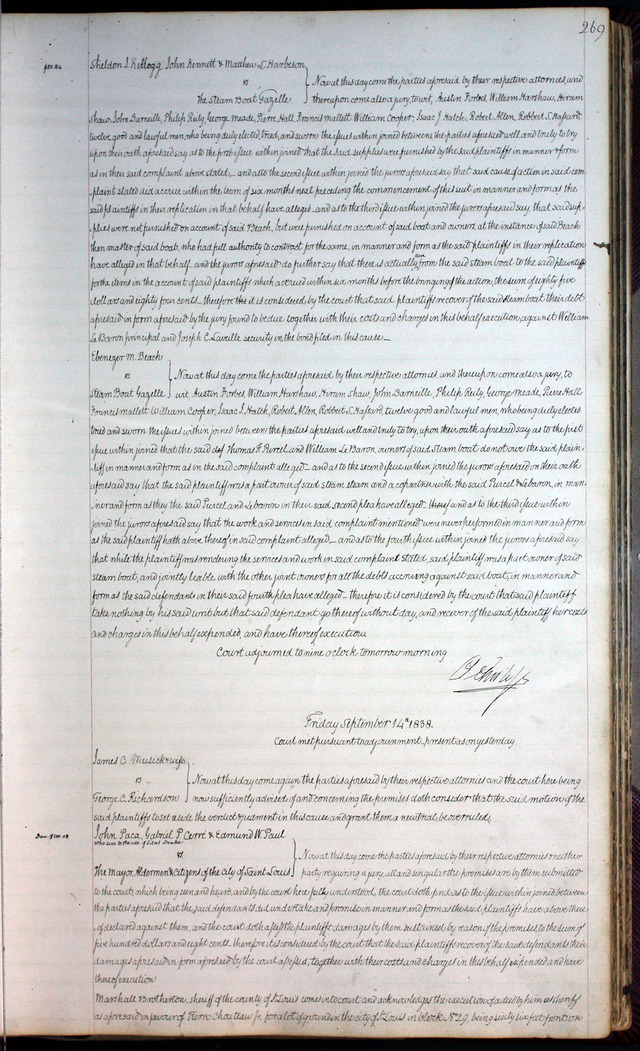 269
Sheldon I. Kellogg, John Kennett & Matthew L. Harbeson
vs } Now at this day come the parties aforesaid by their respective attornies, and
The Steam Boat Gazelle } thereupon come also a jury, to wit, Austin Forbes, William Harshaw, Hiram
Shaw, John Barneille, Philip Reily, George Meade, Pierre Hall, Francis mallett William Cooper, Isaac J Hatch, Robert Allen, Robbert S. Hassard,
twelve good and lawful men, who being duly elected, tried, and sworn the issues within joined between the parties aforesaid well and truly to try
upon their oath aforesaid say as to the first issue within joined that the said supplies were furnished by the said plaintiffs in manner & form
as in their said complaint above stated, and as to the second issue within joined the jurors aforesaid say that said cause of action in said com
plaint stated did accrue within the term of six months next preceding the commencement of this suit in manner and form as the
said plaintiffs in their replication in that behalf have alleged. and as to the third issue within joined the jurors aforesaid say that said sup
plies were not furnished on account of said Beach, but were furnished on account of said boat and owners at the instance of said Beach
then master of said boat, who had full authority to contract for the same, in manner and form as the said plaintiffs in their replication
have alleged in that behalf. and the jurors aforesaid do further say that there is actually due from the said steam boat to the said plaintiffs
for the items in the account of said plaintiffs which accrued within six months before the bringing of the action, the sum of eighty five
dollars and eighty four cents. therefore it is considered by the court that said plaintiffs recover of the said steam boat their debt
aforesaid in form aforesaid by the jury found to be due together with their costs and charges in this behalf execution against William
Le Baron principal and Joseph C Laveille security in the bond filed in this cause
Ebenezer M. Beach
vs } Now at this day come the parties aforesaid by their respective attornies, and thereupon come also a jury, to
Steam Boat Gazelle } wit, Austin Forbes, William Harshaw, Hiram Shaw, John Barneille, Philip Reily, George Meade, Pierre Hall
Francis mallett William Cooper, Isaac J. Hatch, Robert Allen, Robbert S. Hassard, twelve good and lawful men, who being duly elected
tried and sworn the issues within joined between the parties aforesaid well and truly to try, upon their oath aforesaid say as to the first
issue within joined that the said Thomas F. Purcel and William Le Baron, owners of said Steam boat do not owe the said plain
tiff in manner and form as in the said complaint alleged. and as to the second issue within joined the jurors aforesaid on their oath
aforesaid say that the said plaintiff was a part owner of said steam and a copartner with the said Purcel & Lebaron, in man
ner and form as they the said Purcel and Lebaron in their said second plea have alleged. and as to the third issue within
joined the jurors aforesaid say that the work and services in said complaint mentioned were never performed in manner and form
as the said plaintiff hath above thereof in said complaint alleged. and as to the fourth issue within joined the jurors aforesaid say
that while the plaintiff was rendering the services and work in said complaint stated, said plaintiff was a part owner of said
steam boat, and jointly liable with the other joint owners for all the debts accruing against said boat, in manner and
form as the said defendants in their said fourth plea have alleged. therefore it is considered by the court that said plaintiff
take nothing by his said writ but that said defendant go thereof without day, and recover of the said plaintiff her costs
and charges in this behalf expended, and have thereof execution.
Court adjourned to nine oclock tomorrow morning
Friday September 14th 1838.
Court met pursuant to adjournment, present as on yesterday
James C Musick & wife
vs } Now at this day come again the parties aforesaid by their respective attornies and the court here being
George C. Richardson } now sufficiently advised of and concerning the premises doth consider that the said motion of the
said plaintiffs to set aside the verdict & judgment in this cause and grant them a new trial be overruled,
John Paca, Gabriel P. Cerré & Edmund W Paul
who sue to the use of
vs } Now at this day come the parties aforesaid by their respective attornies & neither
The mayor, Aldermen & citizens of the city of Saint Louis } party requiring a jury, all and singular the premises are by them submitted
to the court, which being seen and heard, and by the court here fully understood, the court doth find as to the issue within joined between
the parties aforesaid that the said defendants did undertake and promise in manner and form as the said plaintiffs have above there
of declared against them, and the court doth assess the plaintiffs damages by them sustained by reason of the premises to the sum of
five hundred dollars and eight cents. therefore it is considered by the court that the said plaintiffs recover of the said defendants their
damages aforesaid in form aforesaid by the court assessed, together with their costs and charges in this behalf expended and have
thereof execution
Marshall Brotherton, sheriff of the county of St Louis comes into court and acknowledges the execution of a deed by him as sheriff
as aforesaid in favour of Pierre Chouteau Jr. for a lot of ground in the city of St Louis in block No 29, being sixty six feet front on